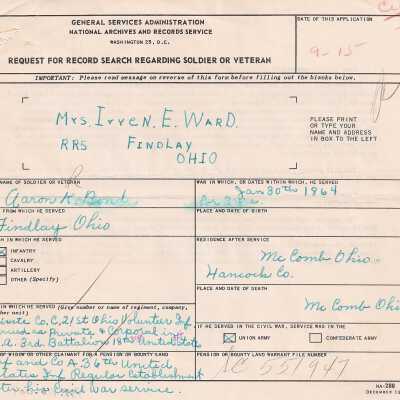 GENERAL SERVICES ADMINISTRATION
NATIONAL ARCHIVES AND RECORDS SERVICE
WASHINGTON 25, D.C.
REQUEST FOR RECORD SEARCH REGARDING SOLDIER OR VETERAN
DATE OF THIS APPLICATION
9-15
IMPORTANT: Please read message on reverse of this form before filling out the blocks below.
Mrs. Irven. E. Ward.
RR5 FINDLAY
OHIO
PLEASE PRINT
OR TYPE YOUR
NAME AND ADDRESS
IN BOX TO THE LEFT
NAME OF SOLDIER OR VETERAN
Aaron K.
WAR IN WHICH, OR DATES WITHIN WHICH, HE SERVED
Jan 30th 1864
FROM WHICH HE SERVED
Findlay Ohio
PLACE AND DATE OF BIRTH
IN WHICH HE SERVED
INFANTRY
CAVALRY
ARTILLERY
OTHER (Specify)
RESIDENCE AFTER SERVICE
Mc Comb Ohio
Hancock Co.
IN WHICH HE SERVED (Give number or name of regiment, company,
other unit)
Private Co, C, 21st Ohio Volunteer Inf
as Private & Corporal in
A. 3rd Battalion 18th United States
PLACE AND DATE OF DEATH
Mc Comb Ohio
IF HE SERVED IN THE CIVIL WAR, SERVICE WAS IN THE
UNION ARMY
CONFEDERATE ARMY
OF WIDOW OR OTHER CLAIMANT FOR PENSION OR BOUNTY LAND
Inf and Co A. 36th United
States Inf Regular Establishment
after his Civil War service.
PENSION OR BOUNTY-LAND WARRANT FILE NUMBER
C 551947
NA-288